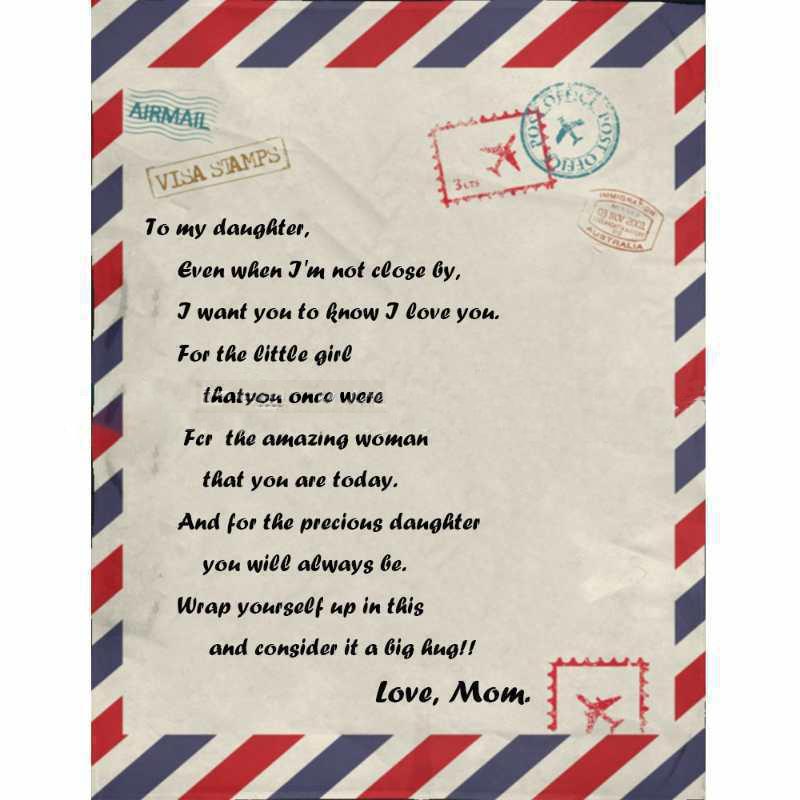 AIRMAIL
VISA STAMPS
3 CTS
POST OFFICE POST OFFIC
IMMIGRATION
AUSTRALIA
To my daughter,
Even when I'm not close by,
I want you to know I love you.
For the little girl
thatyou once were
Fcr the amazing woman
that you are today.
And for the precious daughter
you will always be.
Wrap yourself up in this
and consider it a big hug!!
Love, Mom.